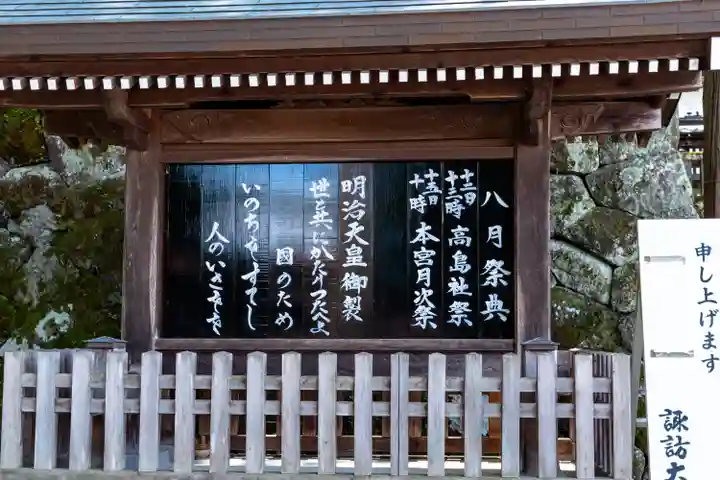 八月祭典
十三日
十三時
高島社祭
十五日
十時
本宮月次祭
明治天皇御製
世と共にかたりつたへよ
国のため
いのちをすてし
人のいさをを
申し上げます
諏訪大